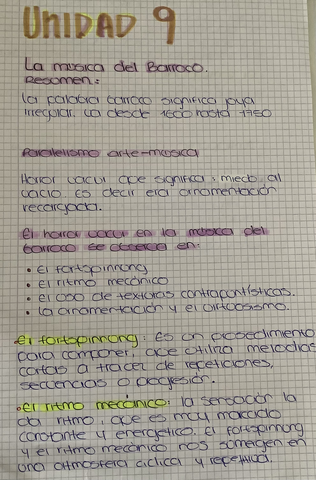 UNIDAD 9
La musica del Barroco.
Resumen:
la palabra barroco significa joya
irregular. Va desde 1600 hasta 1750
Paralelismo arte-musica
Horror vacui que significa: miedo al
vacio es decir era ornamentación
recargada.
El horror vacui en la música del
barroco se observa en:
• El fortspinnung
• El ritmo mecánico
• el uso de texturas contrapuntísticas.
• La ornamentación y el virtuosismo.
El fortspinnung: Es un procedimiento
para componer, que utiliza melodias
cortas a traced de repeticiones,
secuencias o progresión.
•El ritmo mecánico: la sensación la
da ritmo, que es muy marcado
constante y energetico. El fortspinnung
y el ritmo mecánico nos sumergen en
una atmosfera ciclica y repetitiva.